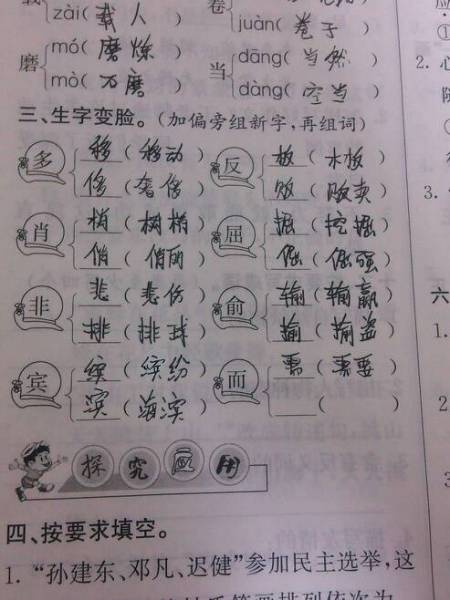 zài( 载人 ) 卷
juàn( 卷子 )
磨 mó( 磨炼 ) 当 dāng( 当然 )
mò( 石磨 ) dàng( 空当 )
三、生字变脸。(加偏旁组新字,再组词)
多 移 ( 移动 ) 反 板 ( 木板 )
侈 ( 奢侈 ) 贩 ( 贩卖 )
肖 梢 ( 树梢 ) 屈 掘 ( 挖掘 )
俏 ( 俏丽 ) 倔 ( 倔强 )
非 悲 ( 悲伤 ) 俞 输 ( 输赢 )
排 ( 排球 )
宾 缤 ( 缤纷 ) 而 需 ( 需要 )
滨 ( 海滨 ) ( )
探究应用
四、按要求填空。
1. “孙建东、邓凡、迟健”参加民主选举,这